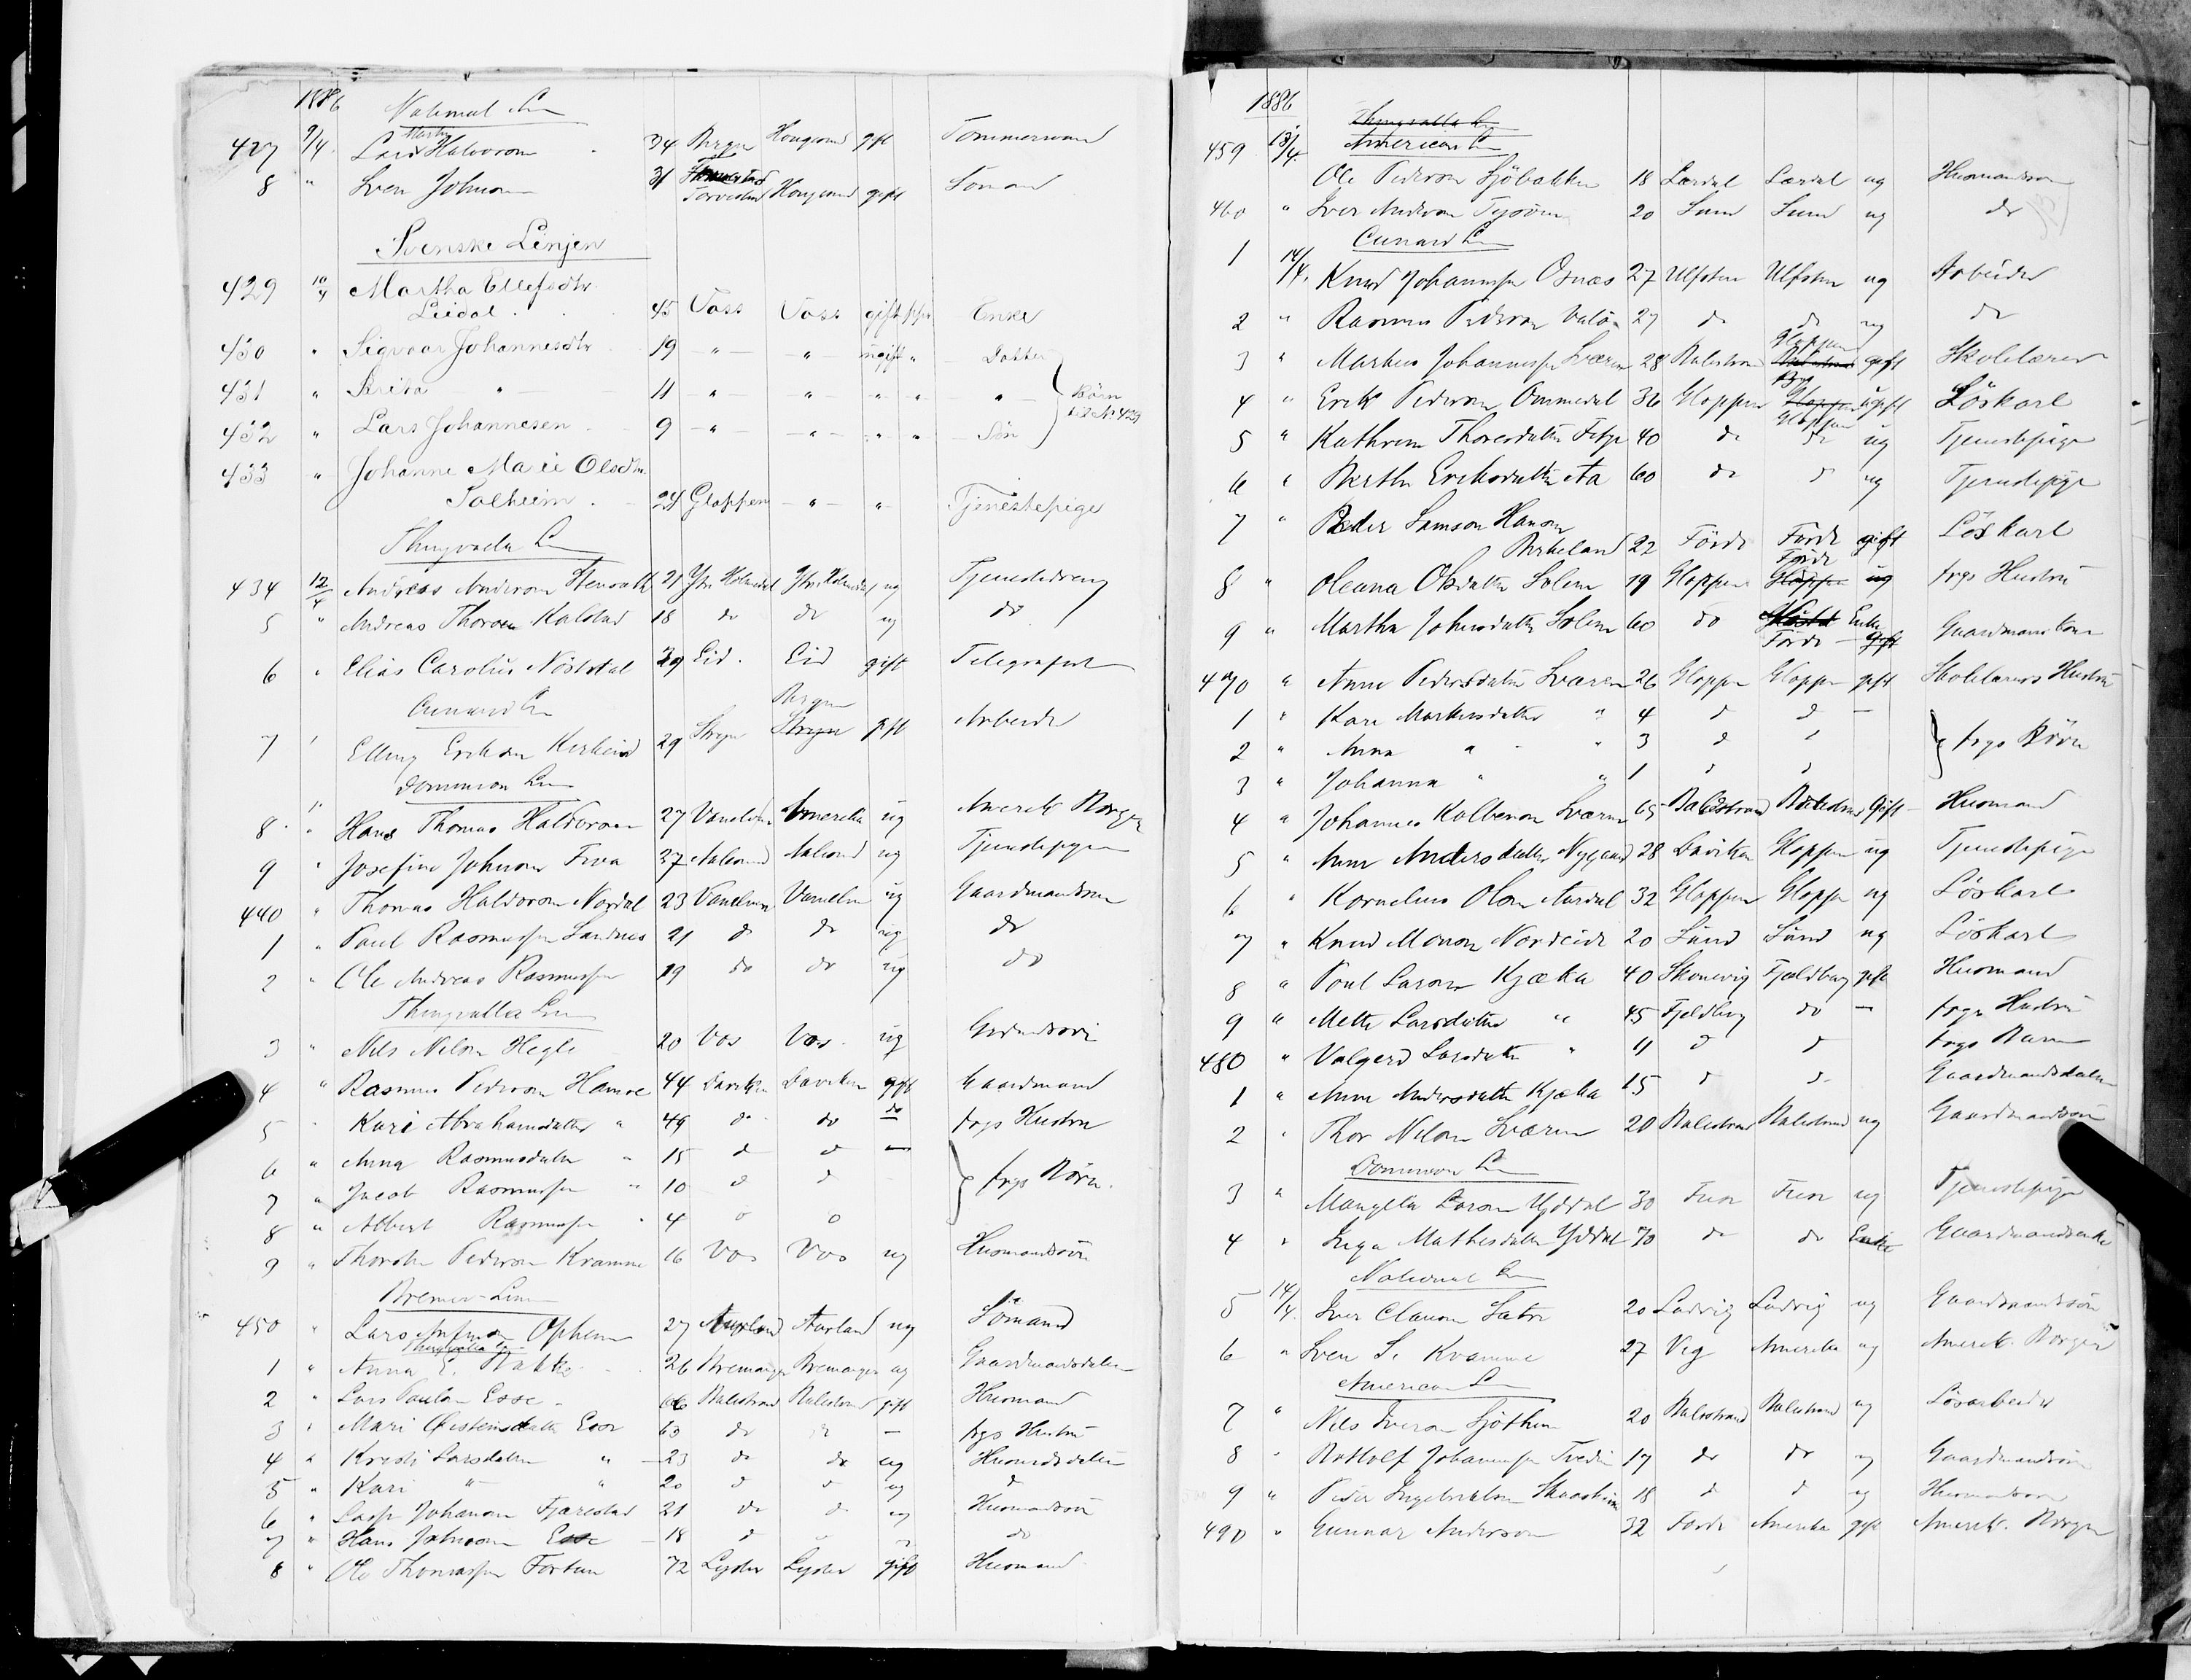 1886
National Lin
427 9/4 Lars Martin Halvorsen 34 Bergen Haugesund gift Tømmermand
8 " Sven Johnsen 31 Torvestad Haugesund gift Sømand
Svenske Linjen
429 10/4 Martha Ellefsdtr
Leidal 45 Voss Voss gift Enke
430 " Sigvor Johannesdtr 19 " " ugift " Datter
431 " Brita " 11 " " " " "
Børn
til No 429
432 " Lars Johannesen 9 " " " " Søn
433 " Johanne Marie Olsdtr
Solheim 24 Gloppen " " Tjenestepige
Thingvalla Lin
434 12/4 Andreas Andersen 21 Ytr Holmedal Ytr Holmedal ug Tjenestedreng
5 " Andreas Thorsen Kalstad 18 do do ug do
6 " Elias Carolus Nøstdal 29 Eid Eid gift Telegrafist
Cunard Lin
Bergen
7 " Elling Eriksen 29 Stryn Stryn gift Arbeider
Dominion Lin
8 " Hans Thomas Haldorsen 27 Vanelven Amerika ug Amerik Borger
9 " Josefine Johnsen 37 Aalesund Aalesund ug Tjenestepige
440 " Thomas Haldorsen Nordal 23 Vanelven Vanelven ug Gaardmandssøn
1 " Paul Rasmussen Sandnes 21 do do ug do
2 " Ole Andreas Rasmussen 19 do do ug do
Thingvalla Lin
3 " Nils Nilsen Hegle 20 Vos Vos ug
4 " Rasmus Pedersen Hamre 44 Daviken Daviken gift Gaardmand
5 " Kari Abrahamsdatter " 49 do do do frgs Hustru
6 " Anna Rasmusdatter " 15 do do —
frgs Børn
7 " Jacob Rasmussen " 10 do do
8 " Albert Rasmussen " 4 do do
9 " Thorsten Pedersen Kvamme 16 Vos Vos ug Husmandssøn
Bremer-Lin
450 " Lars Opheim 27 Aurland Aurland ug Sømand
Thingvalla Lin
1 " Anna E. 26 Bremanger Bremanger ug Gaardmandsdatter
2 " Lars Paulsen Esse 66 Balestrand Balestrand gift Husmand
3 " Mari Øisteinsdatter Esse 63 do do — frgs Hustru
4 " Kristi Larsdatter " 23 do do ug Husmandsdatter
5 " Kari " " 20 do do ug do
6 " Lasse Johansen Fjærestad 21 do do ug Husmandssøn
7 " Hans Johnsen Esse 18 do do " do
8 " Ole Thomassen Fortun 72 Lyster Lyster gift Husmand
1886
Thingvalla Lin
459 13/4 American Lin
Ole Pedersen Sjøbakken 18 Lærdal Lærdal ug Husmandssøn
460 " Iver Andersen 20 Sund Sund ug do
Cunard Lin
1 14/4 Knud Johannessen Osnæs 27 Ulfsten Ulfsten ug Arbeider
2 " Rasmus Pedersen 27 do do ug do
Gloppen
3 " Markus Johannessen Sværen 28 Balestrand Balestrand gift Skolelærer
4 " Erik Pedersen Ommedal 36 Gloppen Gloppen ugift Løskarl
Gloppen
5 " Kathrine Thoresdatter 40 do do ug Tjenestepige
6 " Berthe Eriksdatter Aa 60 do do ug Tjenestepige
7 " Peder Samson Hansen
Birkeland 22 Førde Førde gift Løskarl
Førde
8 " Oleana Olsdatter Solem 19 Gloppen Gloppen ug frgs Hustru
9 " Martha Johnsdatter Solem 60 do Enke Gaardmandskone
Førde gift
470 " Anne Pedersdatter Sværen 26 Gloppen Gloppen gift Skolelærers Hustru
1 " Kari Markusdatter " 4 do do —
frgs Børn
2 " Anna " " 3 do do
3 " Johanna " " 1 do do
4 " Johannes Kolbensen Sværen 65 Balestrand Balestrand Gift Husmand
5 " Anne Andersdatter Nygaard 28 Daviken Gloppen ug Tjenestepige
6 " Kornelius Olsen Aardal 32 Gloppen Gloppen ug Løskarl
7 " Knud Monsen Nordeide 20 Sund Sund ug Løskarl
8 " Poul Larsen Kjæka 40 Skonevig Fjeldberg gift Husmand
9 " Mette Larsdatter " 45 Fjeldberg do — frgs Hustru
480 " Valgerd Larsdatter " 11 do do frgs Barn
1 " Anne Andersdatter Kjæka 15 do do Gaardmandsdatter
2 " Thor Nilsen Sværen 20 Balestrand Balestrand ug Gaardmandssøn
Dominion Lin
3 " Mangela Larsen Yddal 30 Fuse Fuse ug Tjenestepige
4 " Inga Mathisdatter Yddal 70 do do Enke Gaardmandsenke
National Lin
5 14/4 Iver Clausen Sætre 20 Ladvig Ladvig ug Gaardmandssøn
6 " Sven S. Kvamme 27 Vig Amerika ug Amerik. Borger
American Lin
7 " Nils Iversen Sjøthun 20 Balestrand Balestrand ug Løsarbeider
8 " Botholf Johannessen 17 do do ug Gaardmandssøn
9 " Peder Ingebrigtsen 18 do do ug Husmandssøn
490 " Gunnar Anderson 32 Førde Amerika gift Amerik. Borger